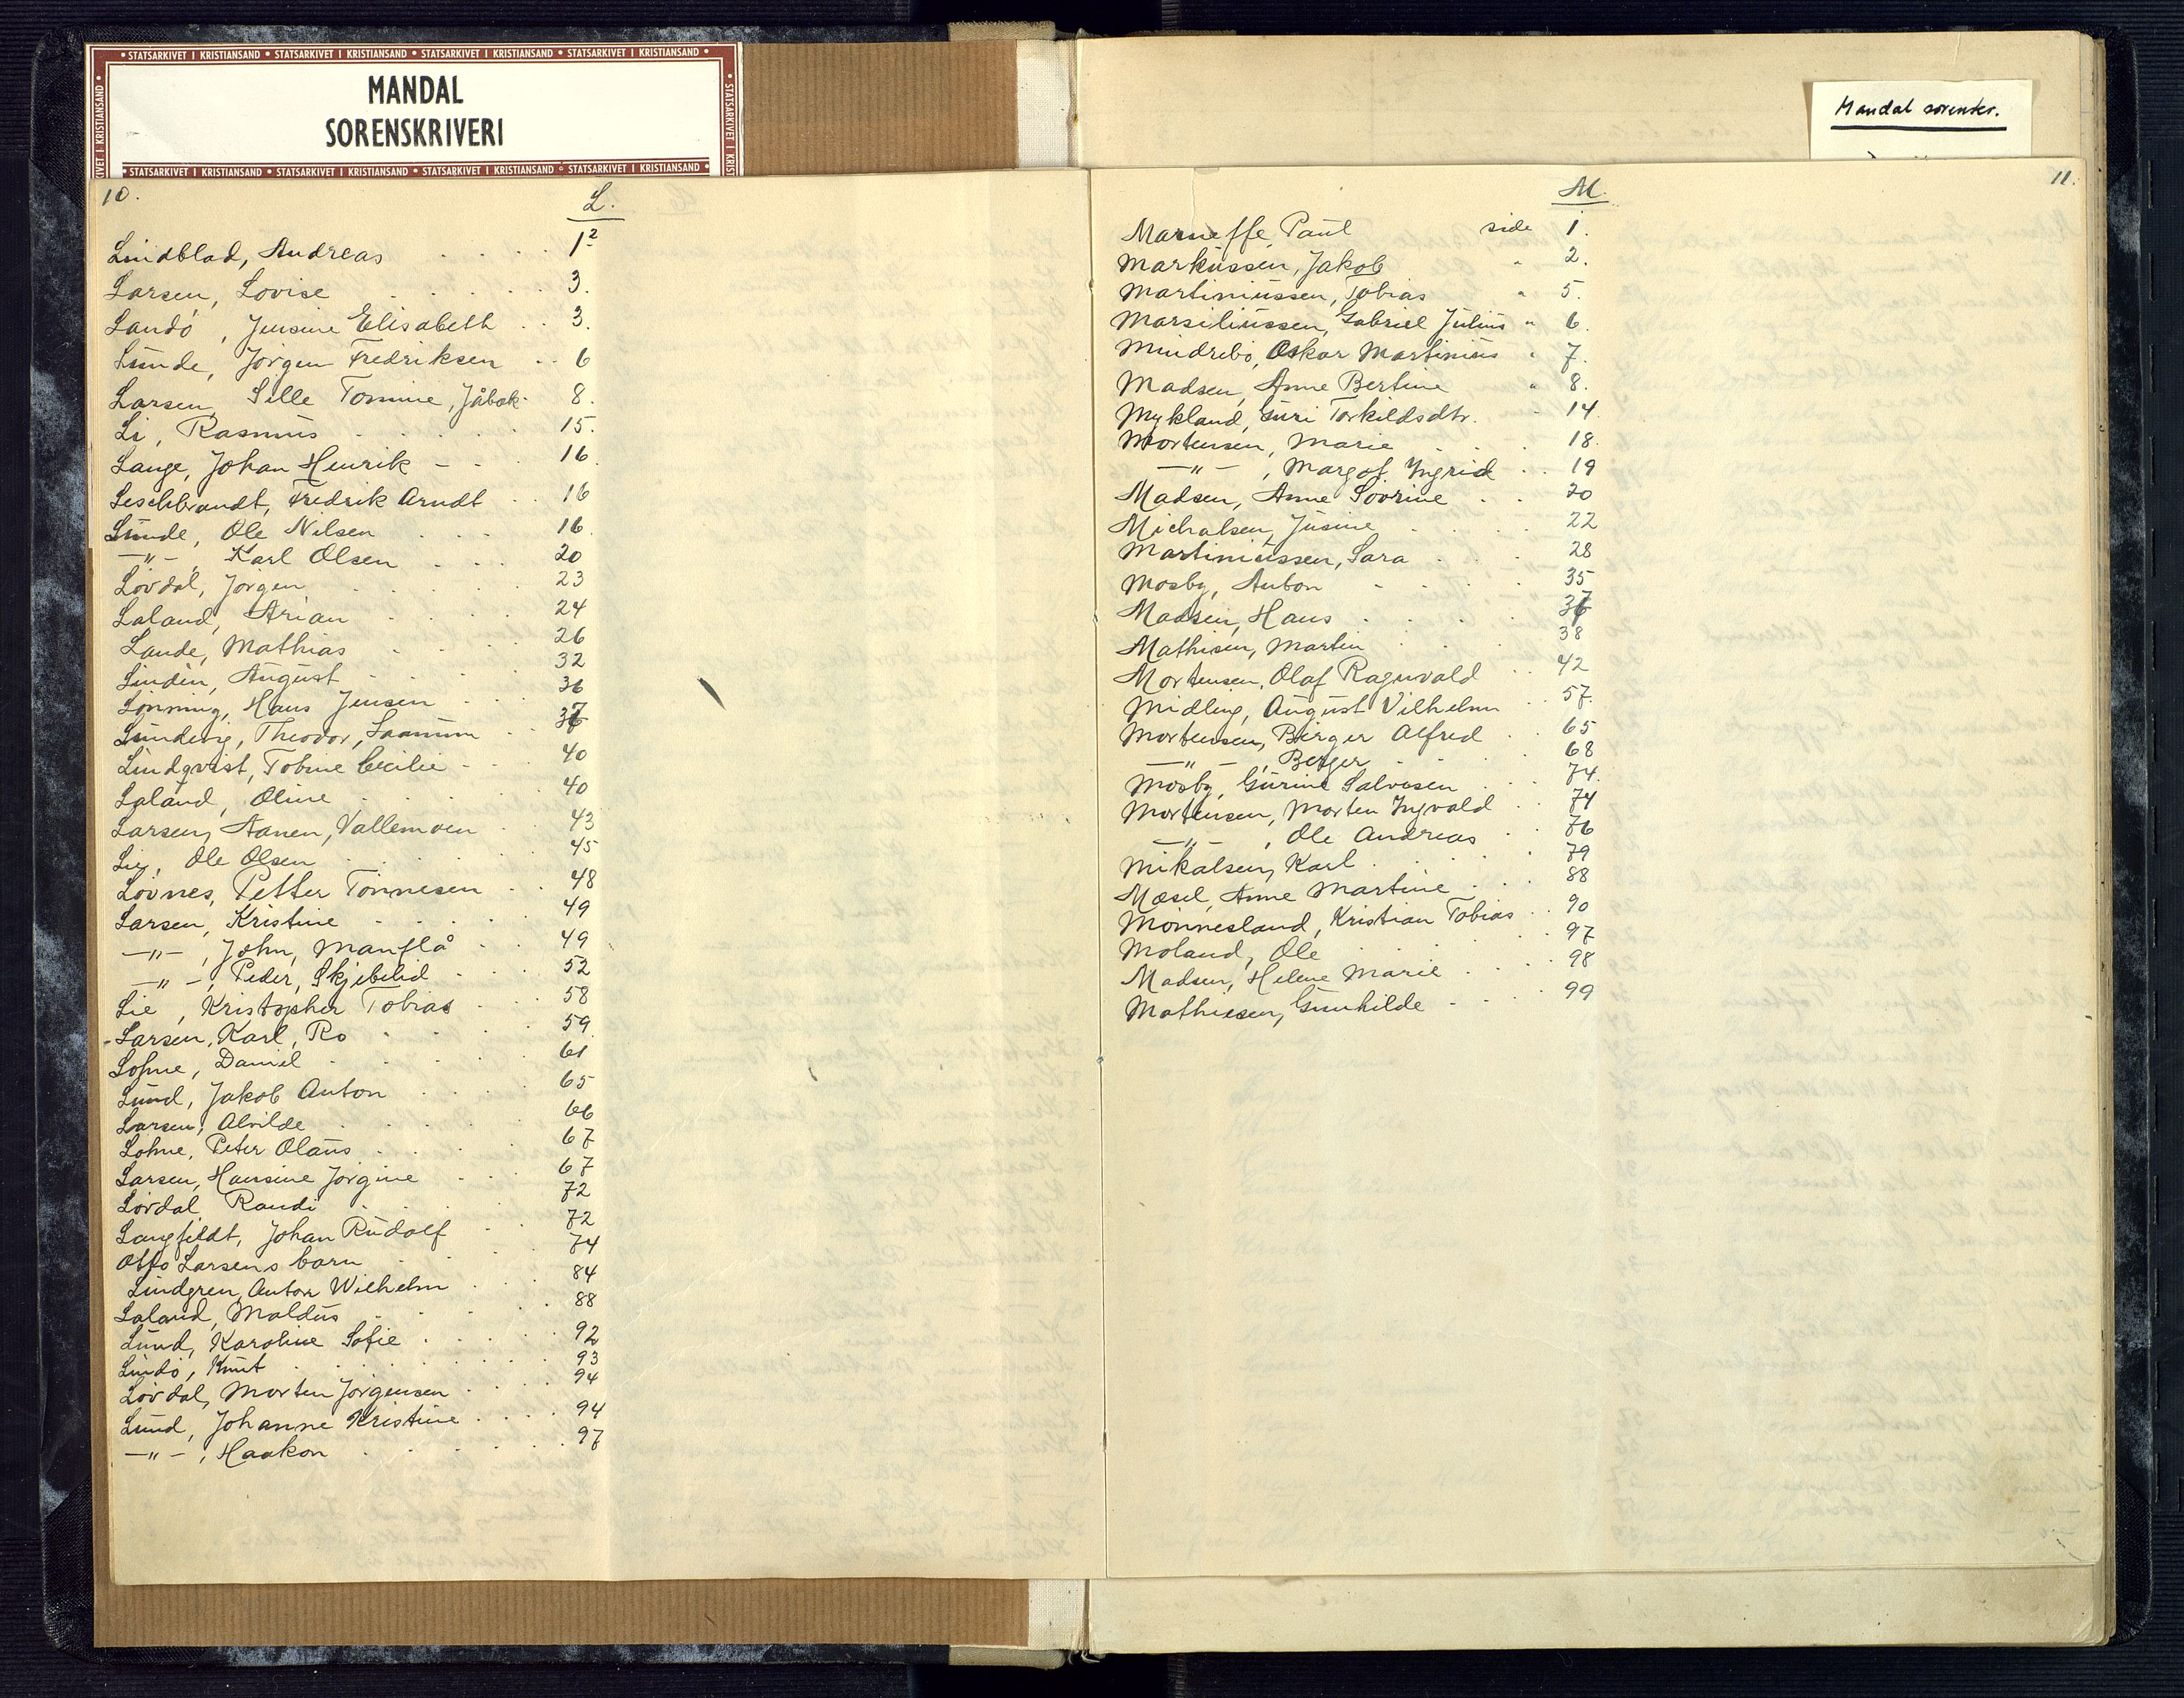 • STATSARKIVET I KRISTIANSAND • STATSARKIVET I KRISTIANSAND • STATSARKIVET I KRISTIANSAND • STATSARKIVET I KRISTIANSAND •
MANDAL
SORENSKRIVERI
• STATSARKIVET I KRISTIANSAND • STATSARKIVET I KRISTIANSAND • STATSARKIVET I KRISTIANSAND • STATSARKIVET I KRISTIANSAND •
Mandal sorenskr.
10.
L.
Lindblad, Andreas 1 2
Larsen, Lovise 3.
Landö, Jensine Elisabeth 3.
Lunde, Jörgen Fredriksen 6
Larsen, Sille Tomine, Jåbæk 8.
Li, Rasmus 15.
Lange, Johan Henrik 16.
Leschbrandt, Fredrik Arndt 16
Lunde, Ole Nilsen 16.
—"—, Karl Olsen 20
Lövdal, Jörgen 23
Laland, Arian 24
Lande, Mathias 26
Lindin, August 32
Lönning, Hans Jensen 36
Lundevig, Theodor, Saanum 37
Lindqvist, Tobine Cecilie 40
Laland, Oline 40
Larsen, Aanen, Vallemoen 43
Lie, Ole Olsen 45
Lövnes, Petter Tönnesen 48
Larsen, Kristine 49
—"—, John, Manflå 49
—"—, Peder, Skjebelid 52
Lie, Kristopher Tobias 58
Larsen, Karl, Ro 59
Lohne, Daniel 61
Lund, Jakob Anton 65
Larsen, Alvilde 66
Lohne, Peter Olaus 67
Larsen, Hansine Jörgine 67
Lövdal, Randi 72
Langfeldt, Johan Rudolf 72
Otto Larsens barn 74
Lindgren, Anton Wilhelm 84
Laland, Maldus 88
Lund, Karoline Sofie 92
Lindö, Knut 93
Lövdal, Morten Jörgensen 94
Lund, Johanne Kristine 94
—"—, Haakon 97
11.
M.
Marneffe, Paul side 1.
Markussen, Jakob " 2.
Martiniussen, Tobias " 5.
Marsiliussen, Gabriel Julius " 6.
Mindrebö, Oskar Martinius " 7.
Madsen, Anne Bertine " 8.
Mykland, Guri Torkildsdtr. 14.
Mortensen, Marie 18.
—"—, Margot Yngrid 19
Madsen, Anne Sovrine 20
Michalsen, Jusine 22
Martiniussen, Sara 28
Mosby, Anton 35
Madsen, Hans 37
Mathisen, Martin 38
Mortensen, Olaf Ragnvald 42
Midling, August Vilhelm 57.
Mortensen, Birger Alfred 65
—"—, Berger 68
Mosby, Gurine Salvesen 74.
Mortensen, Morten Yngvald 74
—"—, Ole Andreas 76
Mikalsen, Karl 79
Mæsel, Anne Martine 88
Mönnesland, Kristian Tobias 90
Moland, Ole 97
Madsen, Helene Marie 98
Mathiesen, Gunhilde 99